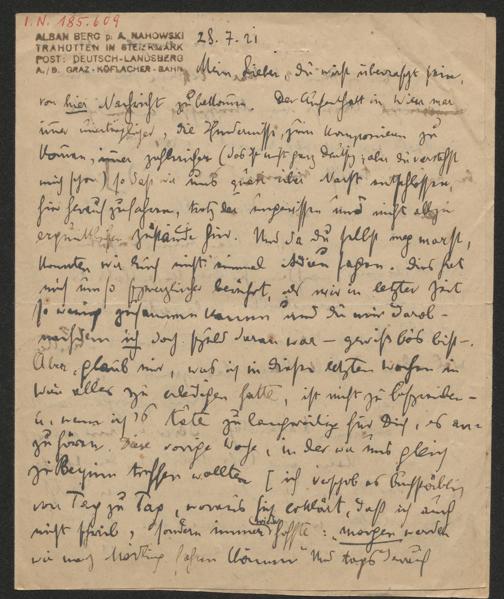 I.N. 185.609
ALBAN BERG p. A. NAHOWSKI
TRAHÜTTEN IN STEIERMARK
POST: DEUTSCH-LANDSBERG
A./B. GRAZ-KÖFLACHER-BAHN
28.7.21
Mein Lieber, du wirst überrascht sein,
von hier Nachricht zu bekommen. Der Aufenthalt in Wien war
immer unerträglicher, die Hindernisse, zum Komponieren zu
kommen, immer zahlreicher (das ist nicht ganz deutsch; aber du verstehst
mich schon) so daß wir uns quasi über Nacht entschlossen,
hier herauf zu fahren, trotz der ungewissen und nicht allzu
erquicklichen Zustände hier. Und da du selbst weg warst,
konnten wir Euch nicht einmal Adieu sagen. Dies hat
mich umso schmerzlicher berührt, als wir in letzter Zeit
so wenig zusammen kamen und du mir darob –
nachdem ich doch schuld daran war – gewiß bös bist –.
Aber glaub mir, was ich in diesen letzten Wochen in
Wien alles zu erledigen hatte, ist nicht zu beschreiben –
u. wenn ich's täte zu langweilig für Dich, es an-
zuhören. Diese vorige Woche, in der wir uns gleich
zu Beginn treffen wollten [ich verschob es buchstäblich
von Tag zu Tag, woraus sich erklärt, daß ich auch
nicht schrieb, sondern immer wieder hoffte: morgen werden
wir nach Mödling fahren können